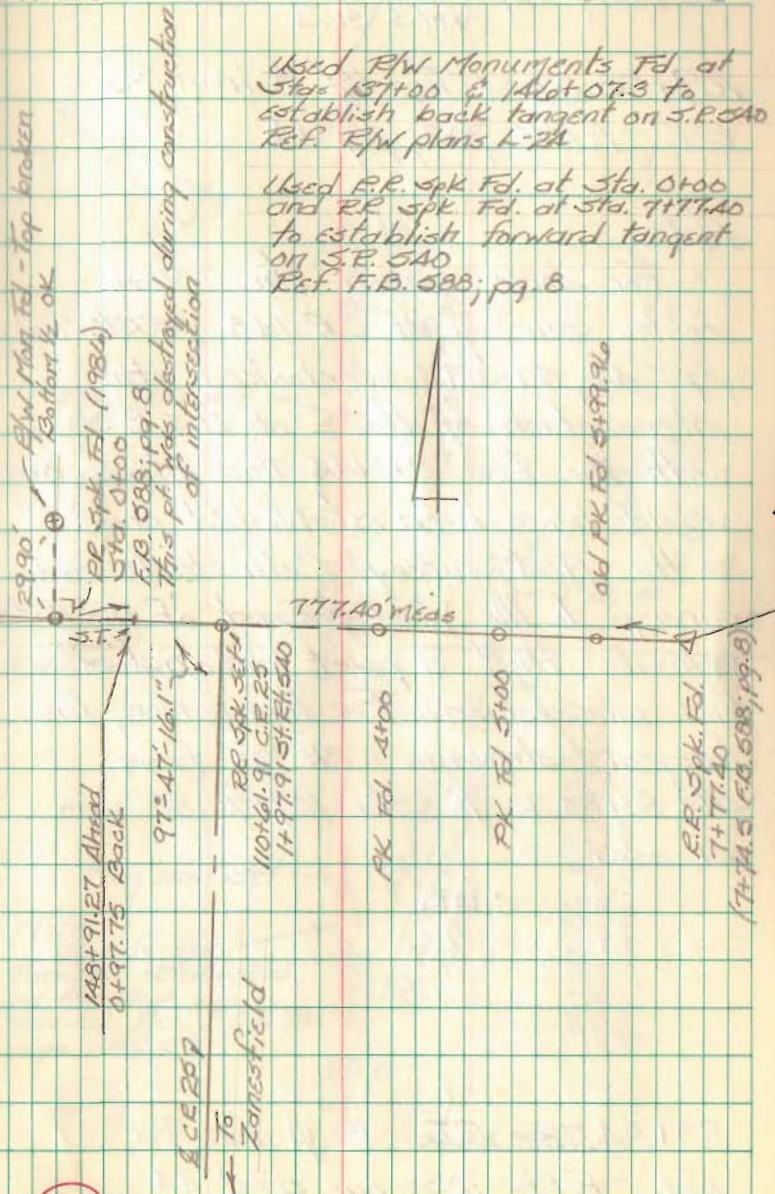 Used R/W Monuments Fd. at
Stas 137+00 & 146+07.3 to
establish back tangent on S.R. 540
Ref. R/W plans L-24
Used R.R. spk Fd. at Sta. 0+00
and RR spk. Fd. at Sta. 7+77.40
to establish forward tangent
on S.R. 540
Ref. F.B. 588; pg. 8
R/W Mon. Fd - Top broken
Bottom 1/2 OK
29.90'
RR Spk. Fd. (1986)
Sta. 0+00
F.B. 588; pg. 8
This pt. was destroyed during construction
of intersection
S.T.
777.40' Meas
old PK Fd 5+99.96
148+91.27 Ahead
0+97.75 Back
97°-47'-16.1"
RR Spk. Set
110+61.91 C.R. 25
1+97.91 St. Rt. 540
PK Fd 4+00
PK Fd 5+00
R.R. Spk. Fd.
7+77.40
(7+74.5 F.B. 588; pg. 8)
℄ C.R. 25
← To
Zanesfield